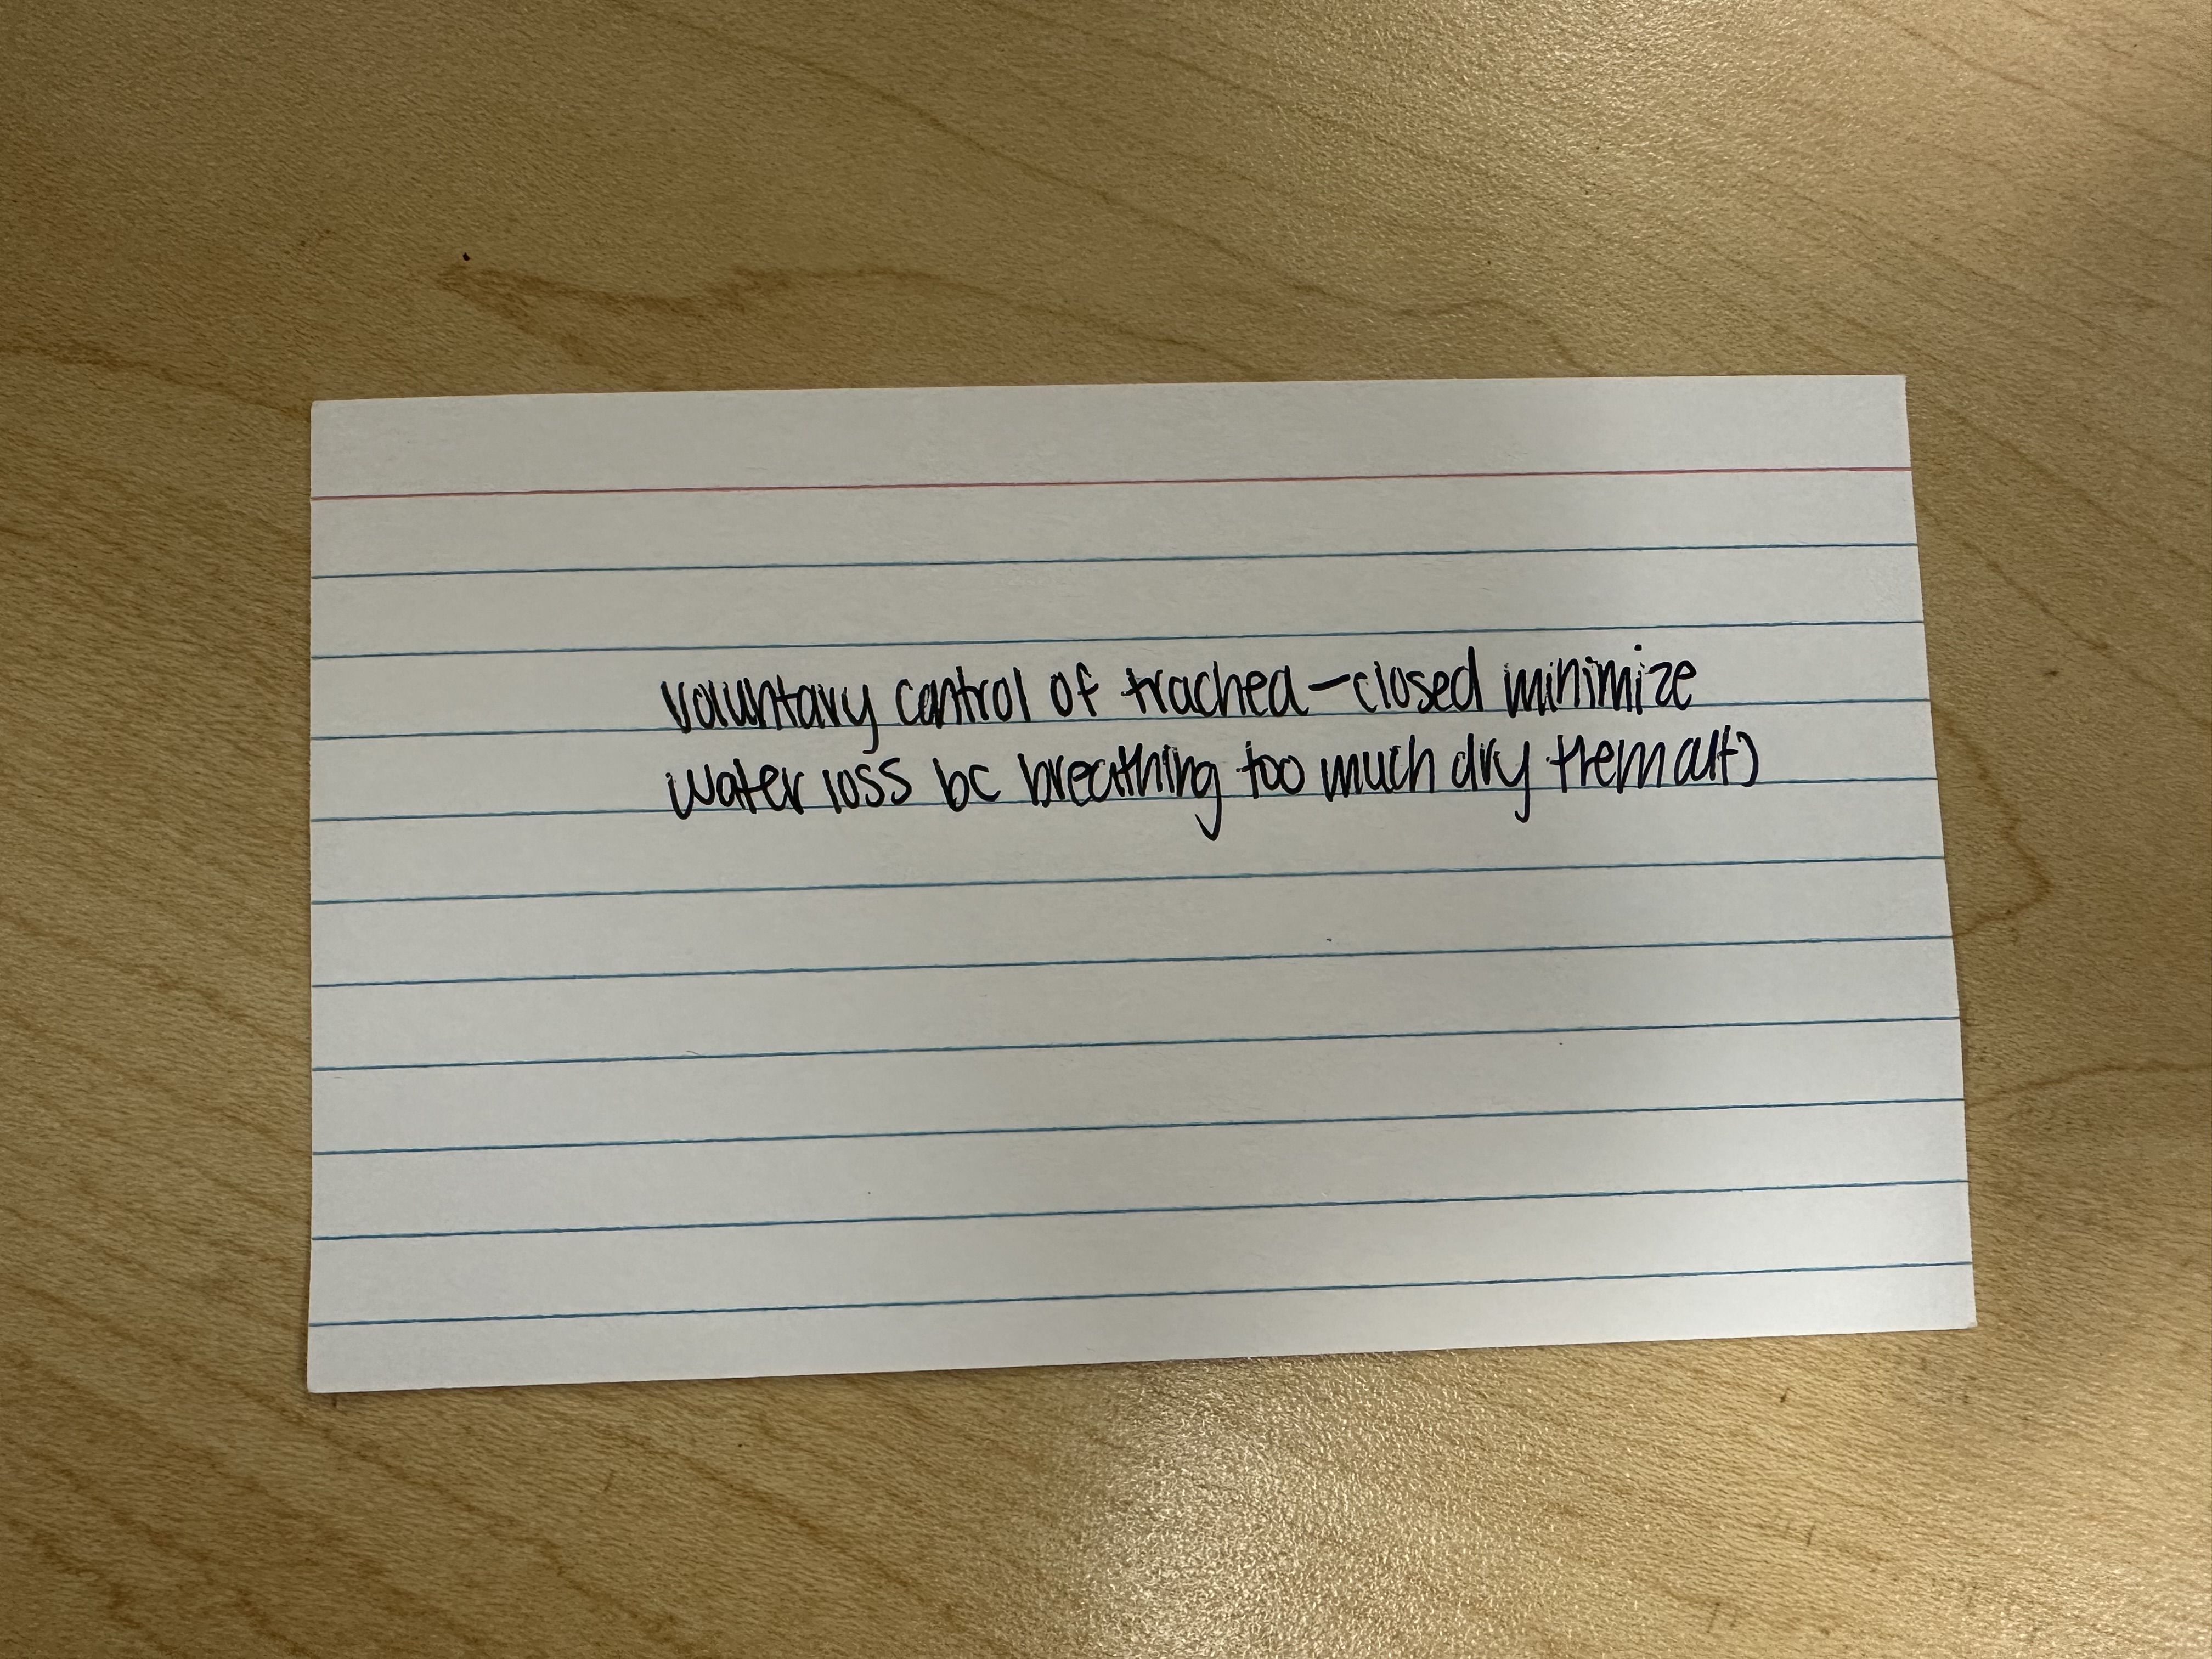 voluntary control of trachea-closed minimize
water loss bc breathing too much dry them out)